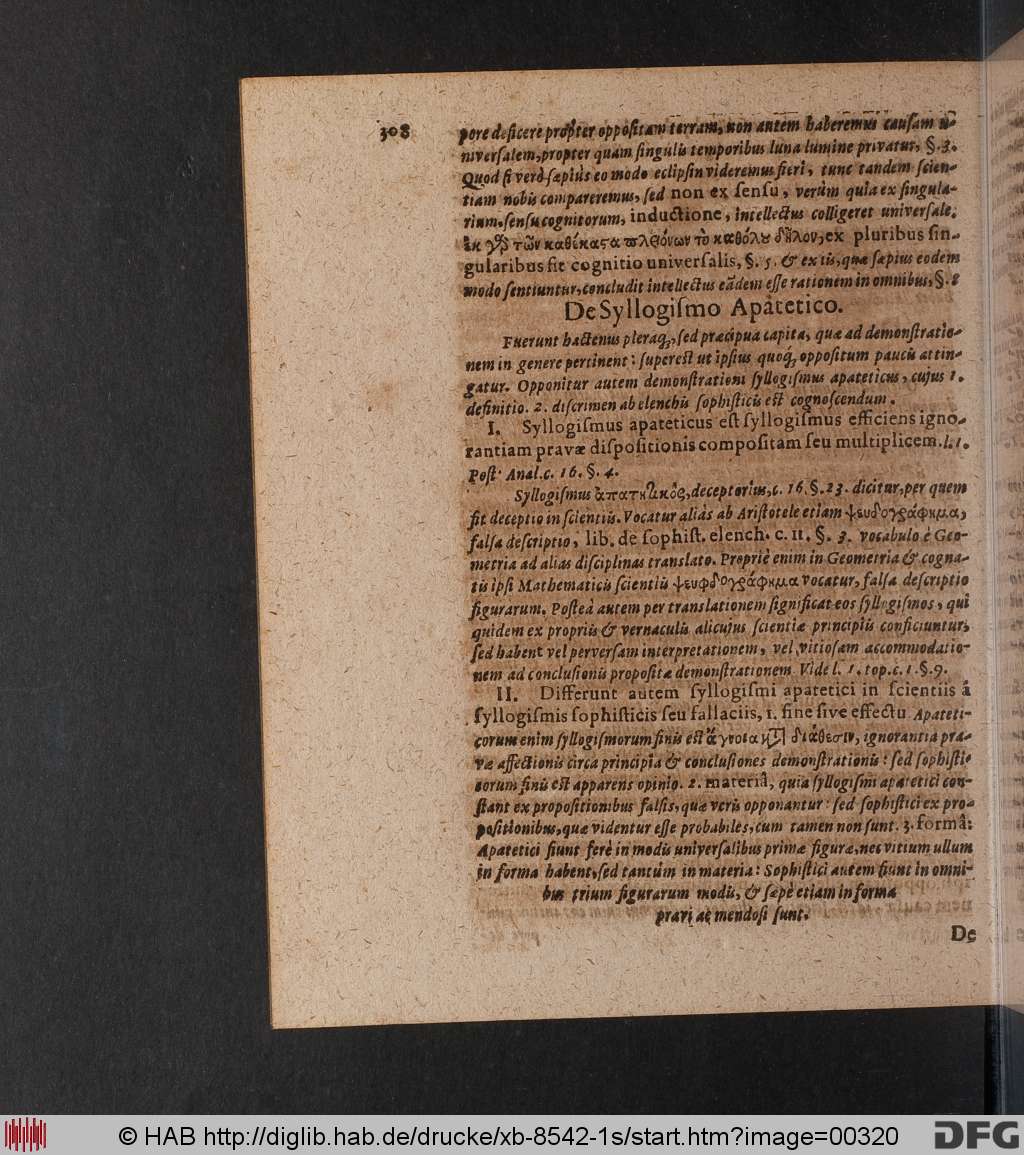 308
pore deficere propter oppositam terram, non autem haberemus causam u-
niversalem, propter quam singulis temporibus luna lumine privatur, §. 3.
Quod si verò sæpiùs eo modo eclipsin videremus fieri, tunc tandem scien-
tiam nobis compareremus, sed non ex sensu, verùm quia ex singula-
rium, sensu cognitorum, inductione, intellectus colligeret universale.
ἐκ γὸ τῶν καθέκαςα πλειόνων τὸ καθόλου δῆλον, ex pluribus sin-
gularibus fit cognitio universalis, §. 5. & ex iis, quæ sæpius eodem
modo sentiuntur, concludit intellectus eādem esse rationem in omnibus, §. 8
De Syllogismo Apatetico.
Fuerunt hactenus pleraq́;, sed præcipua capita, quæ ad demonstratio-
nem in genere pertinent: superest ut ipsius quoq́; oppositum paucis attin-
gatur. Opponitur autem demonstrationi syllogismus apateticus, cujus 1.
definitio. 2. discrimen ab elenchis sophisticis est cognoscendum.
I. Syllogismus apateticus est syllogismus efficiens igno-
rantiam pravæ dispositionis compositam seu multiplicem. l. 1.
Post. Anal. c. 16. §. 4.
Syllogismus ἀπατητικὸς, deceptorius, c. 16. §. 23. dicitur, per quem
fit deceptio in scientiis. Vocatur aliàs ab Aristotele etiam ψευδογράφημα,
falsa descriptio, lib. de sophist. elench. c. 11. §. 3. vocabulo è Geo-
metria ad alias disciplinas translato. Propriè enim in Geometria & cogna-
tis ipsi Mathematicis scientiis ψευφδογράφημα vocatur, falsa descriptio
figurarum. Posteà autem per translationem significat eos syllogismos, qui
quidem ex propriis & vernaculis alicujus scientiæ principiis conficiuntur,
sed habent vel perversam interpretationem, vel vitiosam accommodatio-
nem ad conclusionis propositæ demonstrationem. Vide l. 1. top. c. 1. §. 9.
II. Differunt autem syllogismi apatetici in scientiis â
syllogismis sophisticis seu fallaciis, 1. fine sive effectu. Apateti-
corum enim syllogismorum finis est ἄγνοια κτ διάθεσιν, ignorantia pra-
væ affectionis circa principia & conclusiones demonstrationis: sed sophisti-
corum finis est apparens opinio. 2. materiâ, quia syllogismi apatetici con-
stant ex propositionibus falsis, quæ veris opponantur: sed sophistici ex pro-
positionibus, quæ videntur esse probabiles, cum tamen non sunt. 3. formâ:
Apatetici fiunt ferè in modis universalibus primæ figuræ, nec vitium ullum
in forma habent, sed tantùm in materia: Sophistici autem fiunt in omni-
bus trium figurarum modis, & sæpè etiam in forma
pravi ac mendosi sunt.
De
© HAB http://diglib.hab.de/drucke/xb-8542-1s/start.htm?image=00320
DFG